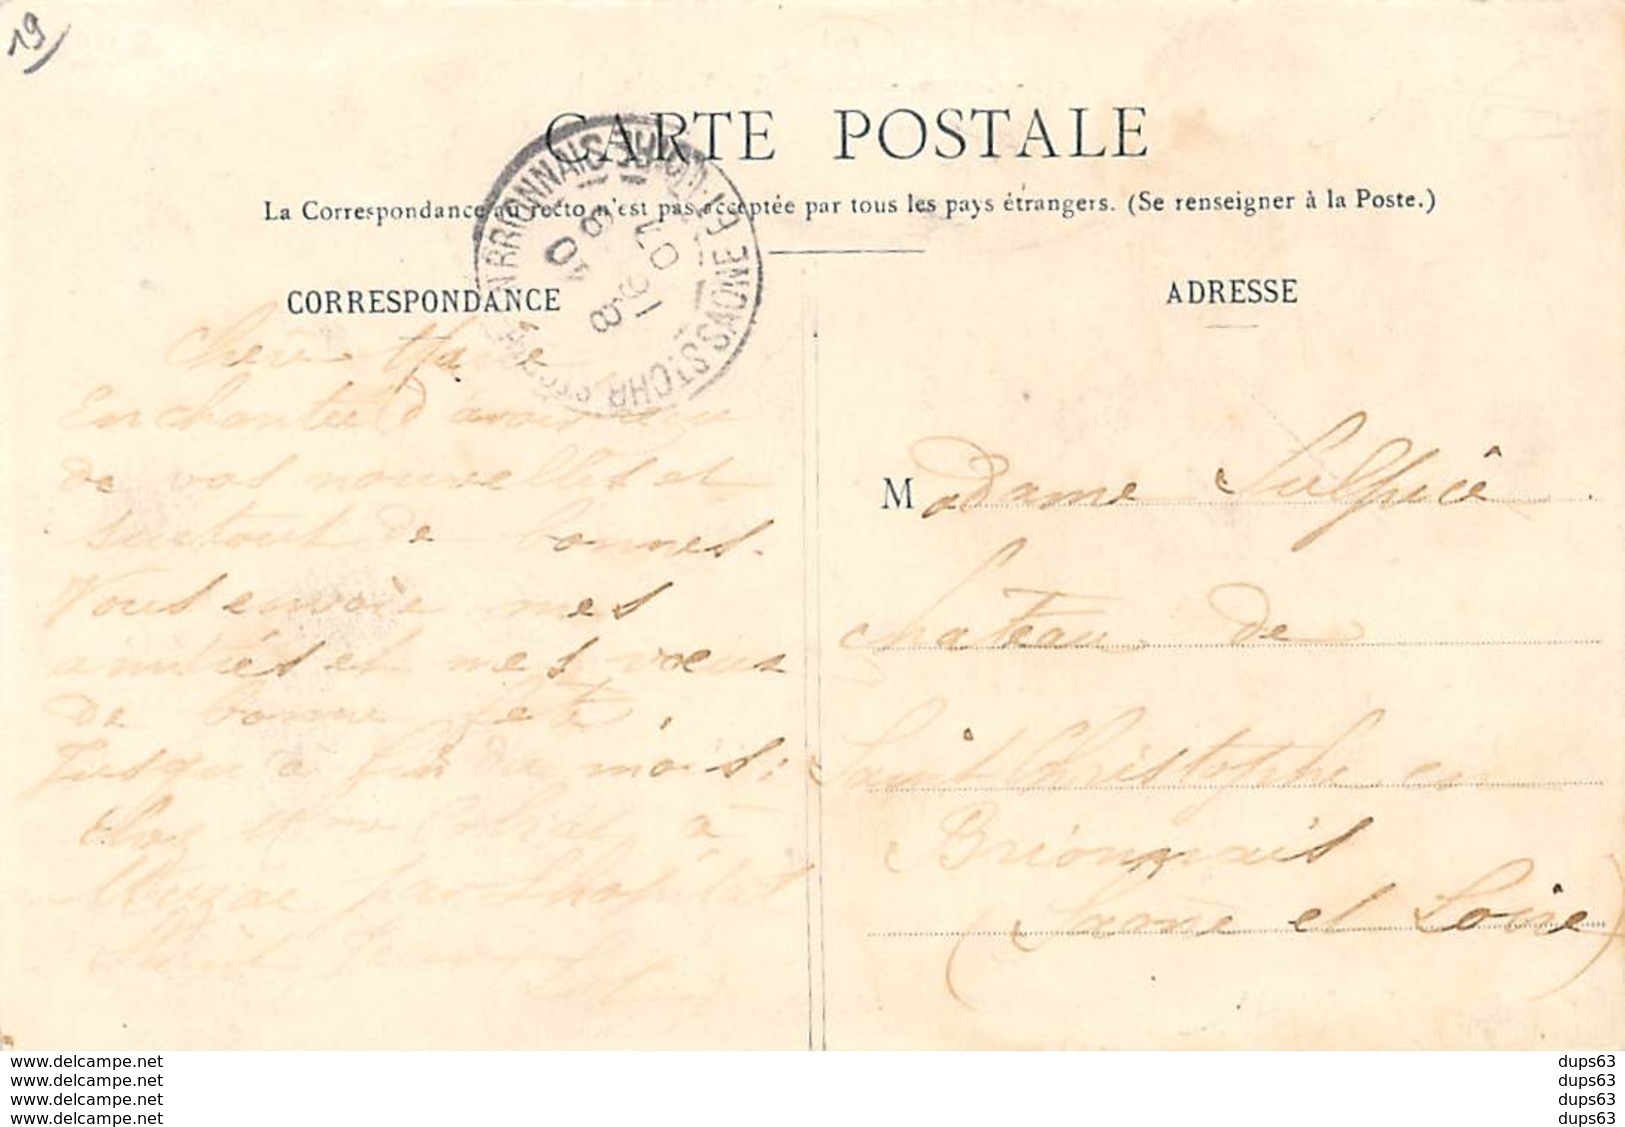 19
CARTE POSTALE
La Correspondance au recto n'est pas acceptée par tous les pays étrangers. (Se renseigner à la Poste.)
CORRESPONDANCE
Enchantée d'avoir reçu
de vos nouvelles et
surtout de bonnes.
Vous envoie mes
amitiés et mes vœux
de bonne fête.
Jusqu'à fin du mois:
chez à
par L'hopital
Saint Jean
Lot
ADRESSE
Madame Sulpice
Château de
Saint Christophe en
Brionnais
(Saône et Loire)
www.delcampe.net
www.delcampe.net
www.delcampe.net
www.delcampe.net
dups63
dups63
dups63
dups63